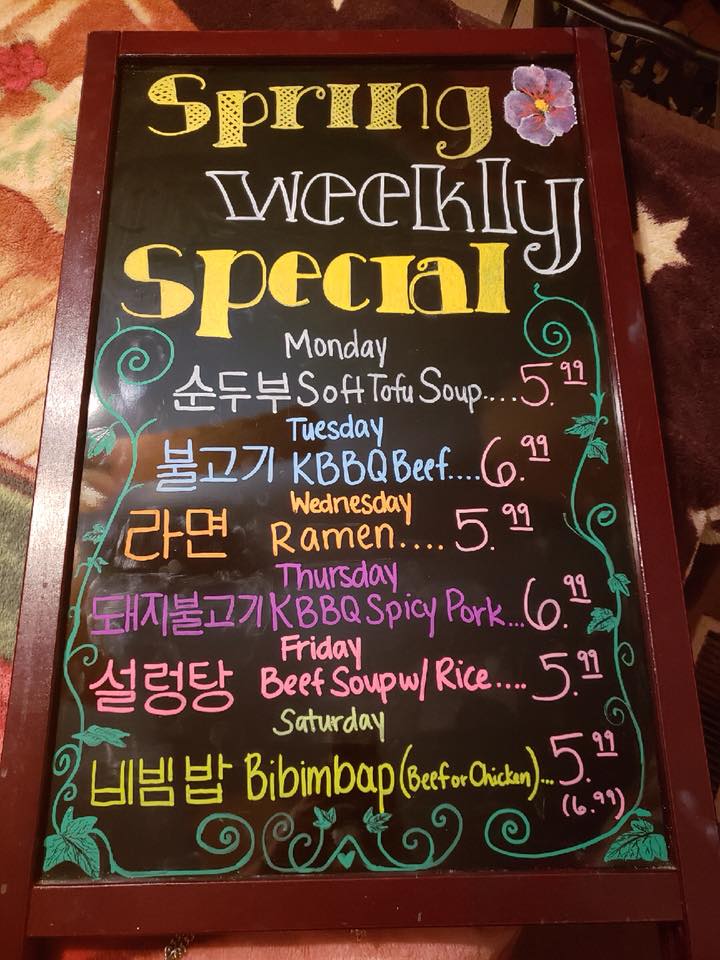 Spring
weekly
Special
Monday
순두부 Soft Tofu Soup....5.99
Tuesday
불고기 KBBQ Beef....6.99
Wednesday
라면 Ramen....5.99
Thursday
돼지불고기 KBBQ Spicy Pork...6.99
Friday
설렁탕 Beef Soup w/ Rice....5.99
Saturday
비빔밥 Bibimbap (Beef or Chicken)...5.99
(6.99)